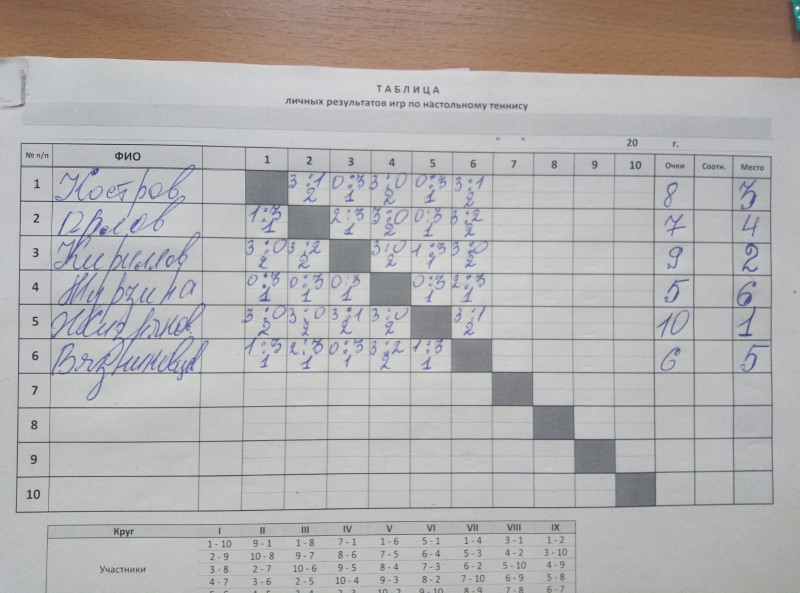 ТАБЛИЦА
личных результатов игр по настольному теннису
" " 20 г.
№ п/п ФИО 1 2 3 4 5 6 7 8 9 10 Очки Соотн. Место
1 Костров 3:1 0:3 3:0 0:3 3:1 8 3
2 1 2 1 2
2 Орлов 1:3 2:3 3:0 0:3 3:2 7 4
1 1 2 1 2
3 Кириллов 3:0 3:2 3:0 1:3 3:0 9 2
2 2 2 1 2
4 0:3 0:3 0:3 0:3 2:3 5 6
1 1 1 1 1
5 3:0 3:0 3:1 3:0 3:1 10 1
2 2 2 2 2
6 1:3 2:3 0:3 3:2 1:3 6 5
1 1 1 2 1
7
8
9
10
Круг I II III IV V VI VII VIII IX
Участники
1 - 10 9 - 1 1 - 8 7 - 1 1 - 6 5 - 1 1 - 4 3 - 1 1 - 2
2 - 9 10 - 8 9 - 7 8 - 6 7 - 5 6 - 4 5 - 3 4 - 2 3 - 10
3 - 8 2 - 7 10 - 6 9 - 5 8 - 4 7 - 3 6 - 2 5 - 10 4 - 9
4 - 7 3 - 6 2 - 5 10 - 4 9 - 3 8 - 2 7 - 10 6 - 9 5 - 8